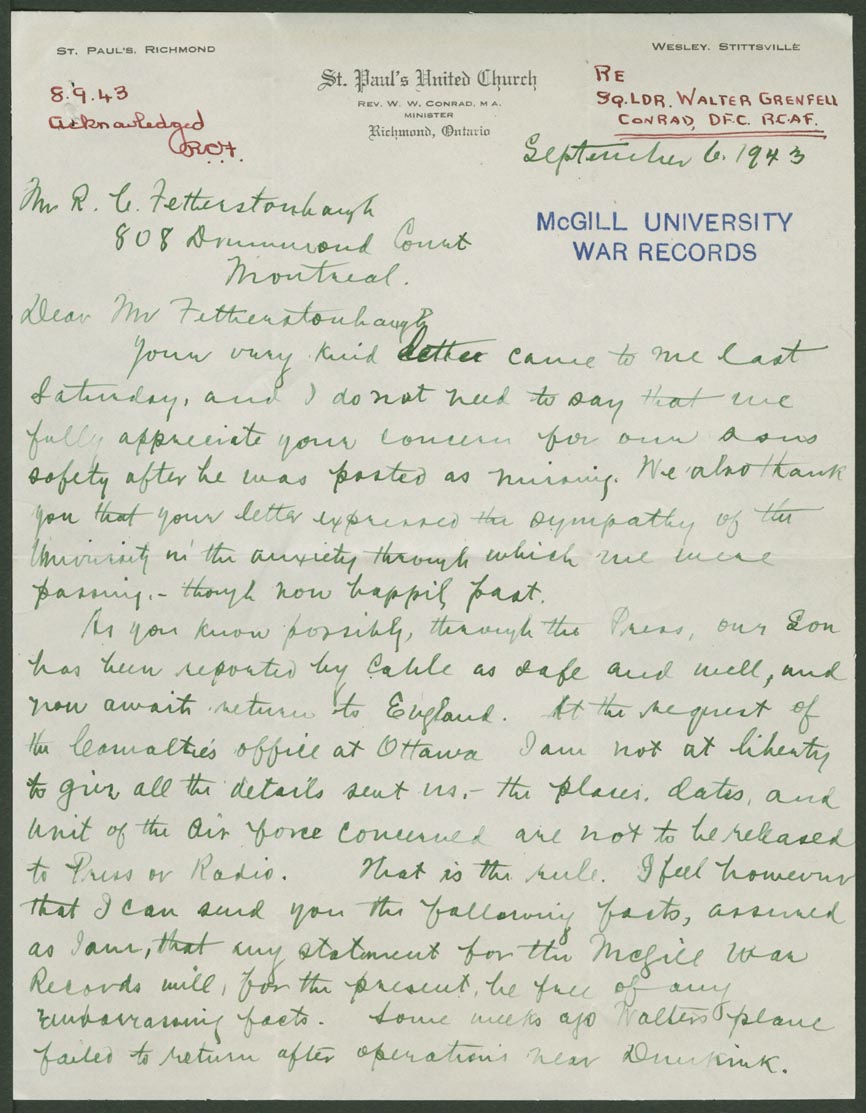 ST. PAUL'S, RICHMOND
WESLEY, STITTSVILLE
St. Paul's United Church
REV. W. W. CONRAD, M.A.
MINISTER
Richmond, Ontario
8.9.43
Acknowledged
R.C.F.
RE
SQ.LDR. WALTER GRENFELL
CONRAD, D.F.C. R.C.A.F.
September 6. 1943
McGILL UNIVERSITY
WAR RECORDS
Mr R. C. Fetherstonhaugh
808 Drummond Court
Montreal.
Dear Mr Fetherstonhaugh
Your very kind letter came to me last
Saturday, and I do not need to say that we
fully appreciate your concern for our sons
safety after he was posted as missing. We also thank
you that your letter expressed the sympathy of the
University in the anxiety through which we were
passing, - though now happily past.
As you know possibly, through the Press, our Son
has been reported by Cable as safe and well, and
now awaits return to England. At the request of
the Casualties office at Ottawa I am not at liberty
to give all the details sent us, - the places, dates, and
unit of the Air force concerned are not to be released
to Press or Radio. That is the rule. I feel however
that I can send you the following facts, assured
as I am, that any statement for the McGill War
Records will, for the present, be free of any
embarrassing facts. Some weeks ago Walters plane
failed to return after operations near Dunkirk.